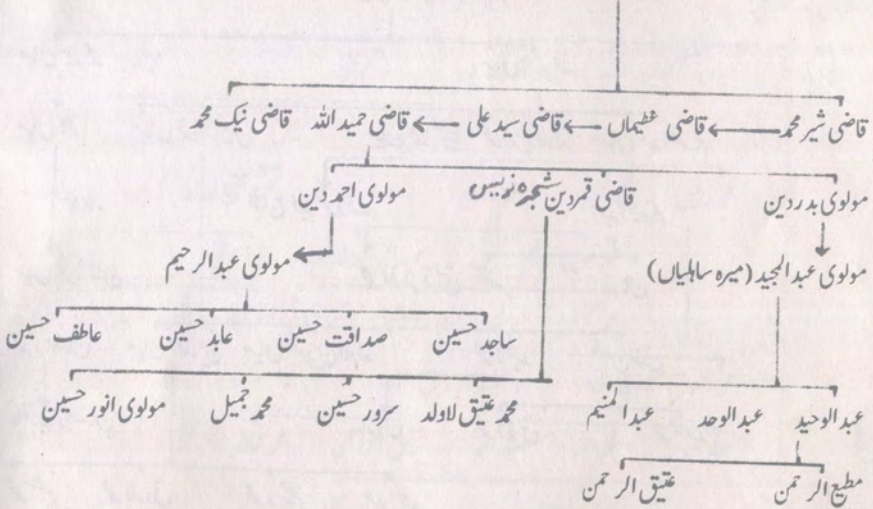 قاضی شیر محمد ← قاضی عظیماں ← قاضی سید علی ← قاضی حمید اللہ قاضی نیک محمد
مولوی بدر دین قاضی قمر دین شجرہ نویس مولوی احمد دین
مولوی عبد المجید (میرہ ساہلیاں) مولوی عبد الرحیم
ساجد حسین صداقت حسین عابد حسین عاطف حسین
عبد الوحید عبد الوحد عبد المنیم محمد عتیق لاولد سرور حسین محمد جمیل مولوی انور حسین
مطیع الرحمن عتیق الرحمن